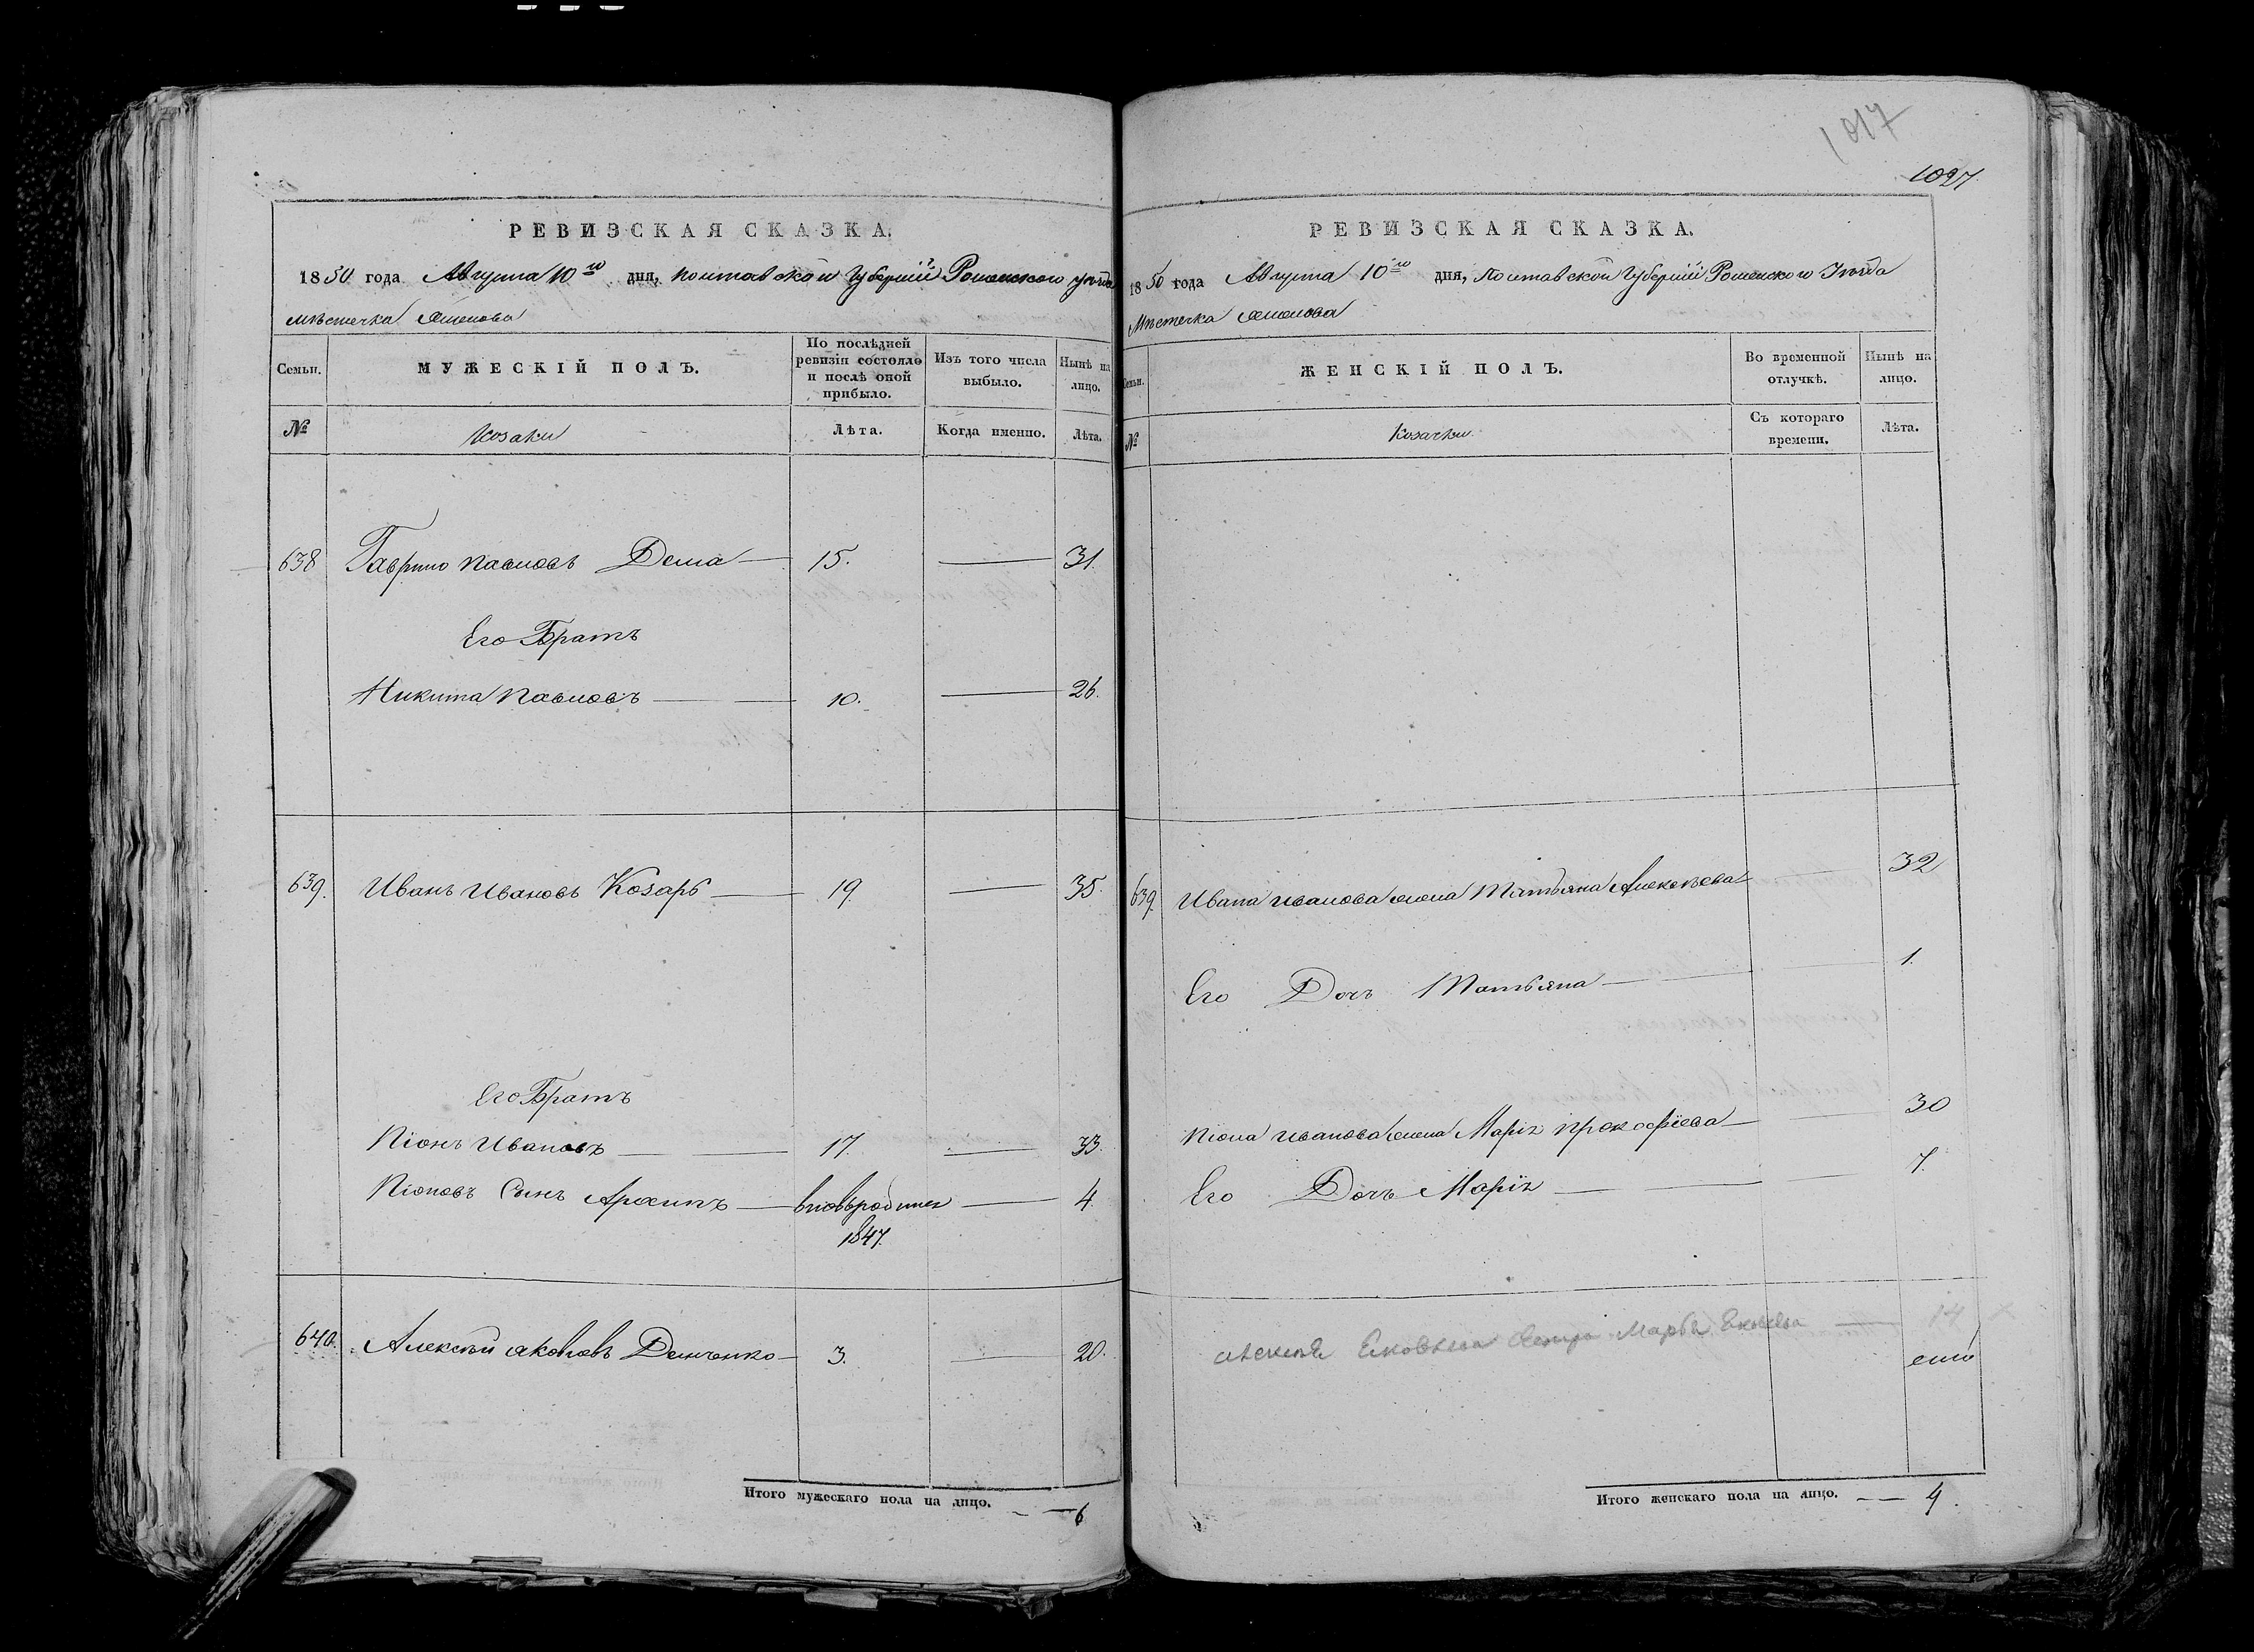 1017
1027
РЕВИЗСКАЯ СКАЗКА.
1850 года Августа 10го дня, Полтавской Губерніи Роменского уѣзда
мѣстечка
Семьи.
МУЖЕСКІЙ ПОЛЪ.
По послѣдней ревизіи состояло и послѣ оной прибыло.
Изъ того числа выбыло.
Нынѣ на лицо.
№
Козаки
Лѣта.
Когда именно.
Лѣта.
638 Гаврило Павловъ Дема — 15. — 31.
Его Братъ
Никита Павловъ — 10. — 26.
639. Иванъ Ивановъ Козарь — 19. — 35.
Его Братъ
Піонъ Ивановъ — 17. — 33.
Піоновъ Сынъ Архипъ — вновьродился — 4.
1847.
640. Алексѣй Яковлевъ Демченко — 3. — 20.
Итого мужескаго пола на лицо. — 6
РЕВИЗСКАЯ СКАЗКА.
1850 года Августа 10го дня, Полтавской Губерніи Роменского Уѣзда
Мѣстечка
Семьи.
ЖЕНСКІЙ ПОЛЪ.
Во временной отлучкѣ.
Нынѣ на лицо.
№
Козачки
Съ котораго времени.
Лѣта.
639. Ивана Иванова жена Татьяна Алексѣева — 32
Его Дочь Татьяна — 1.
Піона Иванова жена Марія Прокофіева — 30
Его Дочь Марія — 7.
сестра Марфа — 14
Итого женскаго пола на лицо. — 4.